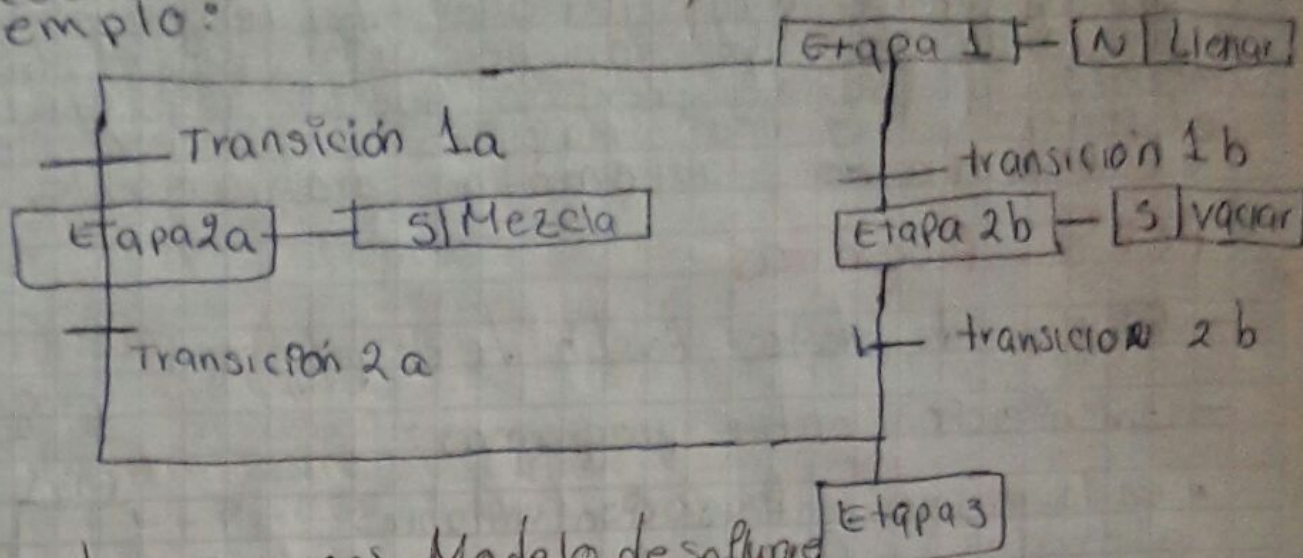 emplo:
Etapa 1 N Llenar
Transición 1a
transición 1b
Etapa2a S Mezcla
Etapa 2b S vaciar
Transición 2a
transicion 2b
Etapa3
Modelo de